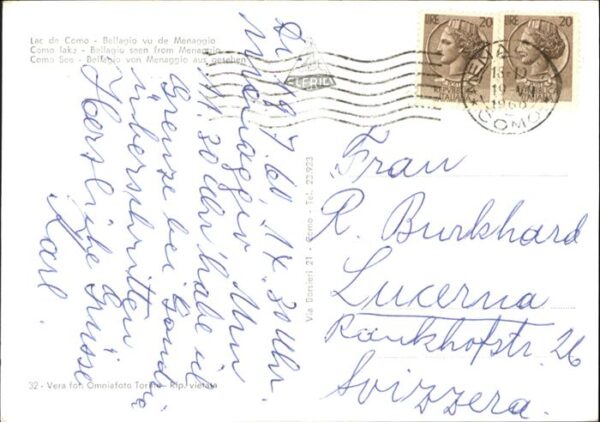 Lac de Como - Bellagio vu de Menaggio
Como lake - Bellagio seen from Menaggio
Como See - Bellagio von Menaggio aus gesehen
LIRE 20
LIRE 20
MENAGGIO
19 VII
1960
COMO
Di 19.7.60 17.30 Uhr.
Menaggio. Um
11.30 Uhr habe ich
Grenze bei Gandria
überschritten
Herzliche Grüsse
Karl.
Via Borsieri 21 - Como - Tel. 23.923
Frau
R. Burkhard
Lucerna
Rankhofstr. 26
Svizzera.
32 - Vera fot. Omniafoto Torino - Rip. vietata